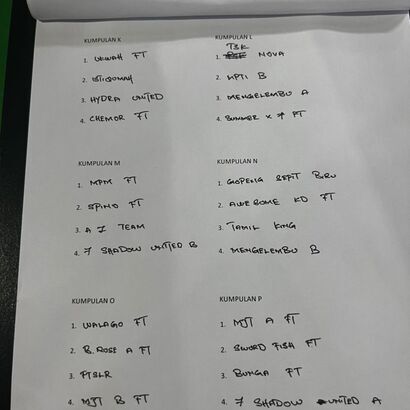 KUMPULAN K
1. UKWAH FT
2. ISTIQOMAH
3. HYDRA UNITED
4. CHEMOR FT
KUMPULAN L
1. TBK NOVA
2. KPTI B
3. MENGELEMBU A
4. SUMMER X 7 FT
KUMPULAN M
1. MPM FT
2. SPINO FT
3. A 7 TEAM
4. 7 SHADOW UNITED B
KUMPULAN N
1. GOPENG SEPIT BIRU
2. AWESOME KD FT
3. TAMIL KING
4. MENGELEMBU B
KUMPULAN O
1. WALAGO FT
2. B. ROSE A FT
3. PTSLR
4. MJT B FT
KUMPULAN P
1. MJT A FT
2. SWORD FISH FT
3. BUNGA FT
4. 7 SHADOW UNITED A